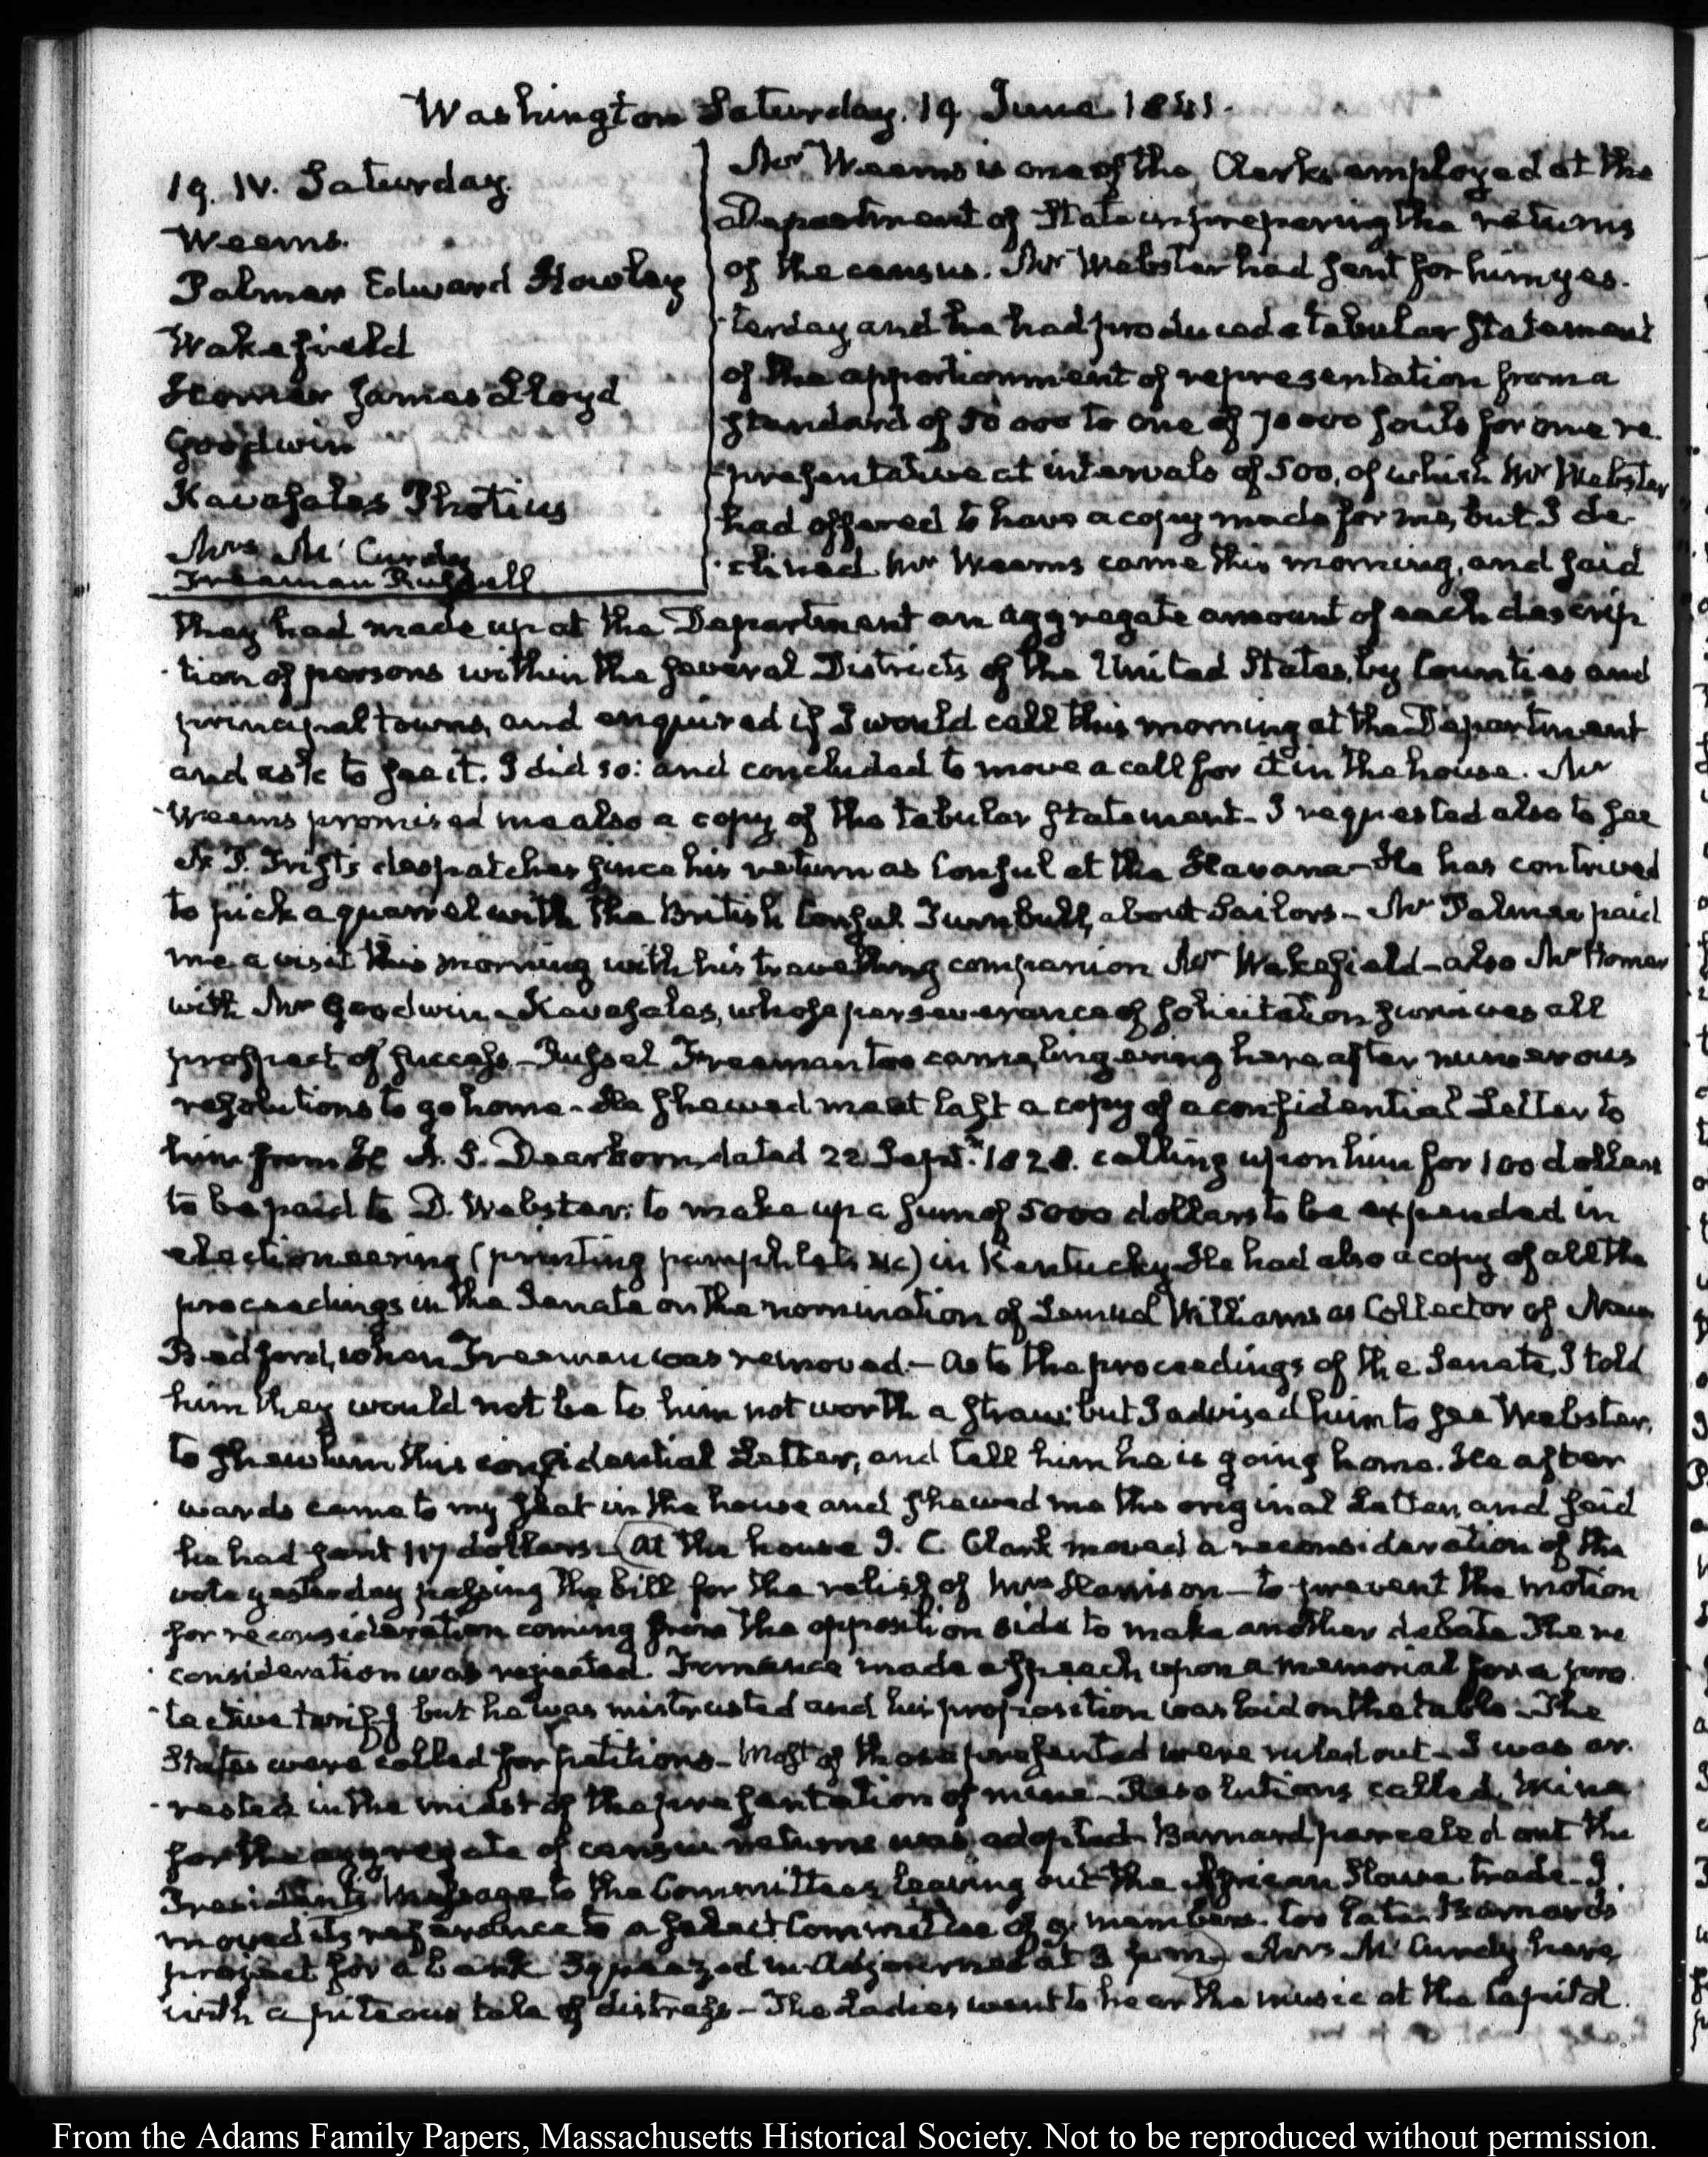 Washington Saturday. 19 June 1841.
19. IV. Saturday.
Weems.
Palmer Edward Howley
Wakefield
Homer James Lloyd
Goodwin
Kavasales Photius
Mrs McCurdy
Freeman Russell
Mr Weems is one of the Clerks employed at the
Department of State in preparing the returns
of the census. Mr Webster had sent for him yes-
terday, and he had produced a tabular statement
of the apportionment of representation from a
standard of 50 000 to one of 70 000 souls for one re-
presentative at intervals of 500, of which Mr Webster
had offered to have a copy made for me, but I de-
clined. Mr Weems came this morning, and said
they had made up at the Department an aggregate amount of each descrip
tion of persons within the several Districts of the United States, by Counties and
principal towns, and enquired if I would call this morning at the Department
and ask to see it. I did so: and concluded to move a call for it in the house. Mr
Weems promised me also a copy of the tabular statement- I requested also to see
N. P. Trist's despatches since his return as Consul at the Havana- He has contrived
to pick a quarrel with the British Consul Turnbull, about Sailors- Mr Palmer paid
me a visit this morning with his travelling companion Mr Wakefield- also Mr Homer
with Mr Goodwin- Kavasales, whose perseverance of solicitation survives all
prospect of success- Russel Freeman too came, lingering here after numerous
resolutions to go home- He shewed me at last a copy of a confidential Letter to
him from H. A. S. Dearborn, dated 22 Septr. 1828. calling upon him for 100 dollars
to be paid to D. Webster; to make up a sum of 5000 dollars to be expended in
electioneering (printing pamphlets &c) in Kentucky- He had also a copy of all the
proceedings in the Senate on the nomination of Lemuel Williams as Collector of New
Bedford, when Freeman was removed- As to the proceedings of the Senate, I told
him they would not be to him not worth a straw; but I advised him to see Webster,
to shew him this confidential Letter, and tell him he is going home. He after
wards came to my seat in the house and shewed me the original Letter, and said
he had sent 117 dollars- At the house J. C. Clark moved a reconsideration of the
vote yesterday passing the bill for the relief of Mrs Harrison- to prevent the motion
for reconsideration coming from the opposition side to make another debate The re
consideration was rejected. Fornance made a speech upon a memorial for a pro-
tective tariff but he was mistrusted and his proposition was laid on the table- The
States were called for petitions- Most of those presented were ruled out- I was ar-
rested in the midst of the presentation of mine- Resolutions called, Mine
for the aggregate of census returns was adopted- Barnard parceled out the
President's Message to the Committees leaving out the African Slave trade- I
moved its reference to a select Committee of 9 members- too late. Barnard's
project for a bank squeezed in Adjourned at 3 p.m. Mrs McCurdy here,
with a piteous tale of distress- The Ladies went to hear the music at the Capitol.
From the Adams Family Papers, Massachusetts Historical Society. Not to be reproduced without permission.